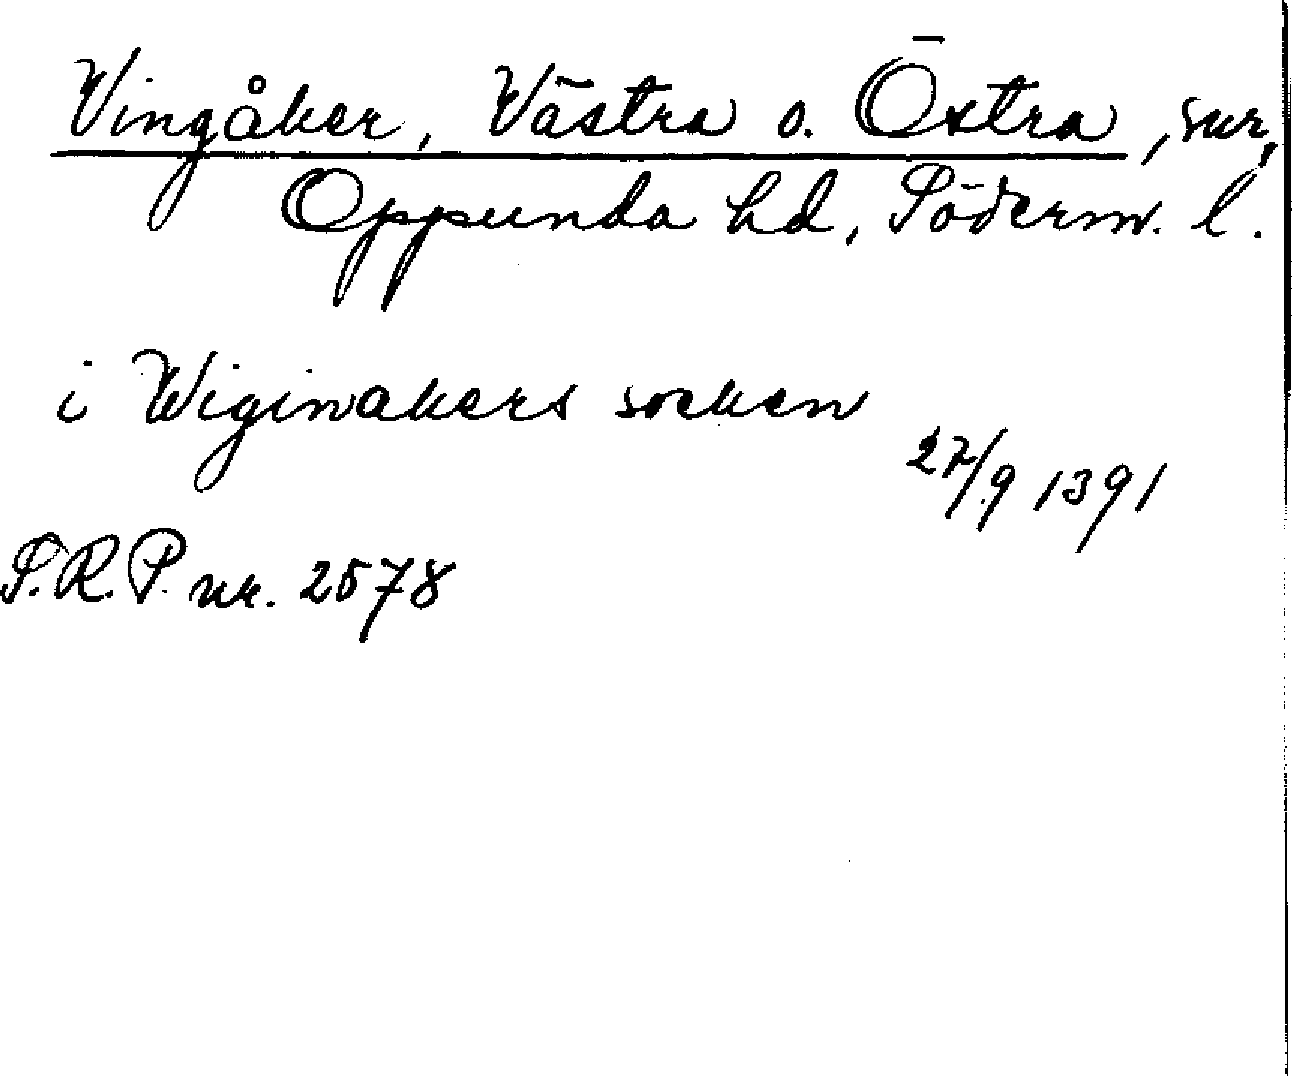 Vingåker, Västra o. Östra, snr,
Oppunda hd, Söderm. l.
i Wiginakers socken
27/9 1391
S.R.P. nr. 2578